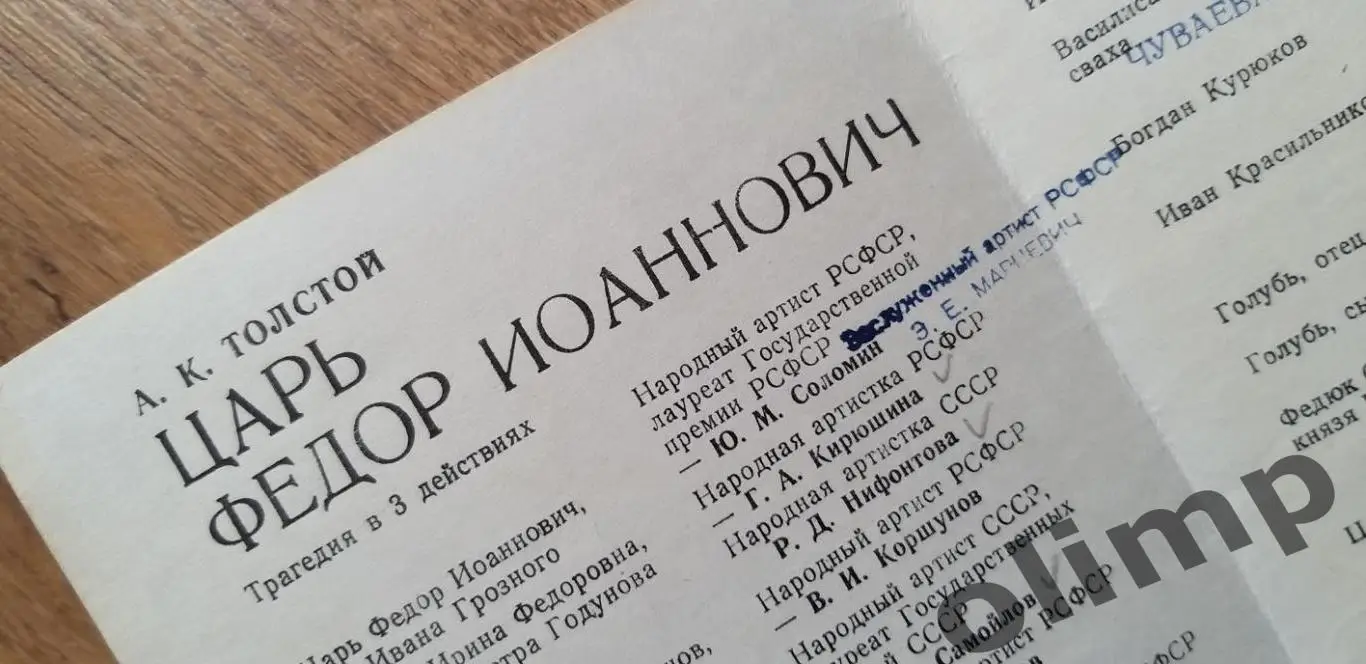 А. К. ТОЛСТОЙ
ЦАРЬ
ФЕДОР ИОАННОВИЧ
Трагедия в 3 действиях
Царь Федор Иоаннович,
Ивана Грозного
Ирина Федоровна,
Годунова
Народный артист РСФСР,
лауреат Государственной
премии РСФСР
— Ю. М. Соломин
Заслуженный артист РСФСР
Э. Е. МАРЦЕВИЧ
Народная артистка РСФСР
— Г. А. Кирюшина
Народная артистка СССР
Р. Д. Нифонтова
Народный артист РСФСР
— В. И. Коршунов
Народный артист СССР,
лауреат Государственных
СССР
Самойлов
артист РСФСР
РСФСР
сваха
ЧУВАЕВА
Богдан Курюков
Иван Красильнико
Голубь, отец
Голубь, сы
Федюк
князя
olimp